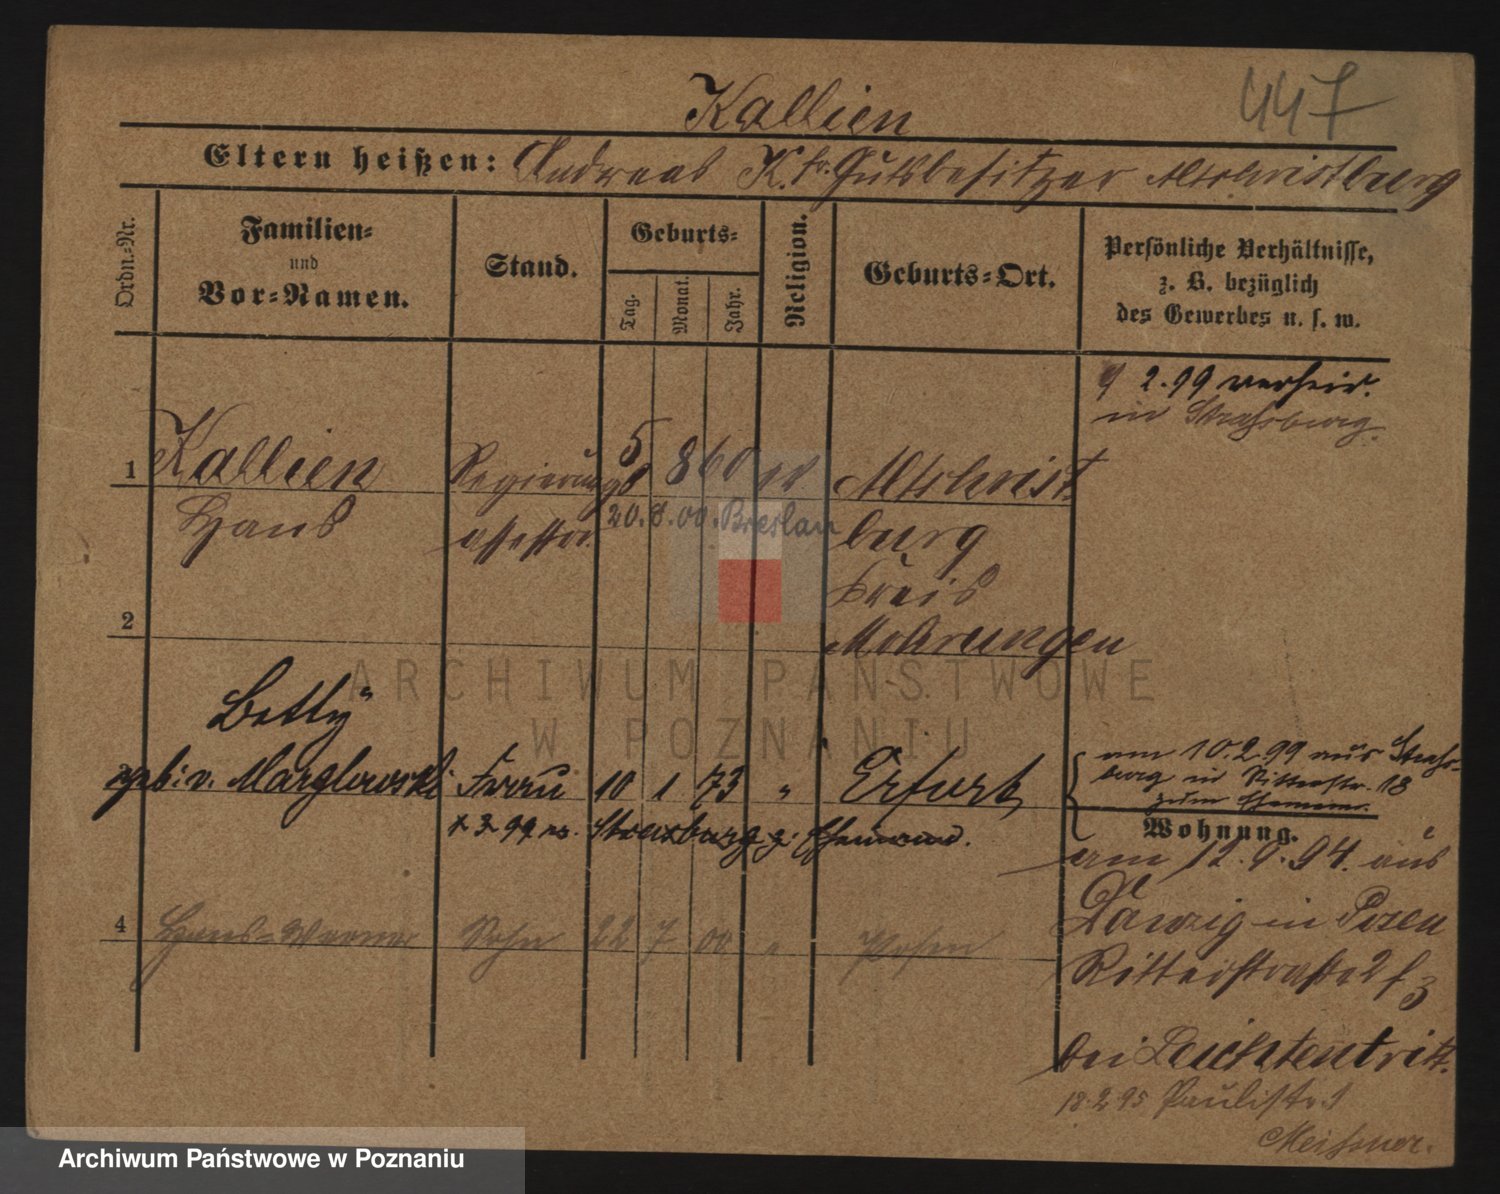 Kallien
447
Eltern heißen: Andreas K. fr. Gutsbesitzer Altchristburg
Ordn.-Nr.
Familien-
und
Vor-Namen.
Stand.
Geburts-
Tag.
Monat.
Jahr.
Religion.
Geburts-Ort.
Persönliche Verhältnisse,
z. B. bezüglich
des Gewerbes u. s. w.
9 2.99 verheir.
in Strassburg.
1 Kallien Regierungs 5 8 60 Altchrist
Hans assessor. 20.8.00. Breslau burg
Kreis
2 Mohrungen
Betty
3 geb: v. Marglowski Frau 10 1 73 " Erfurt
2 99 Strassburg z. Ehemann.
am 10.2.99 aus Strass-
burg in Ritterstr. 18
zum Ehemann.
Wohnung.
am 12.9.94. aus
Danzig in Posen
Ritterstraße 2
bei Leichtentritt.
18.2.95 Paulistr. 
Meissner.
4 Hans-Werner Sohn 22 7 00 " Posen
ARCHIWUM PAŃSTWOWE
W POZNANIU
Archiwum Państwowe w Poznaniu